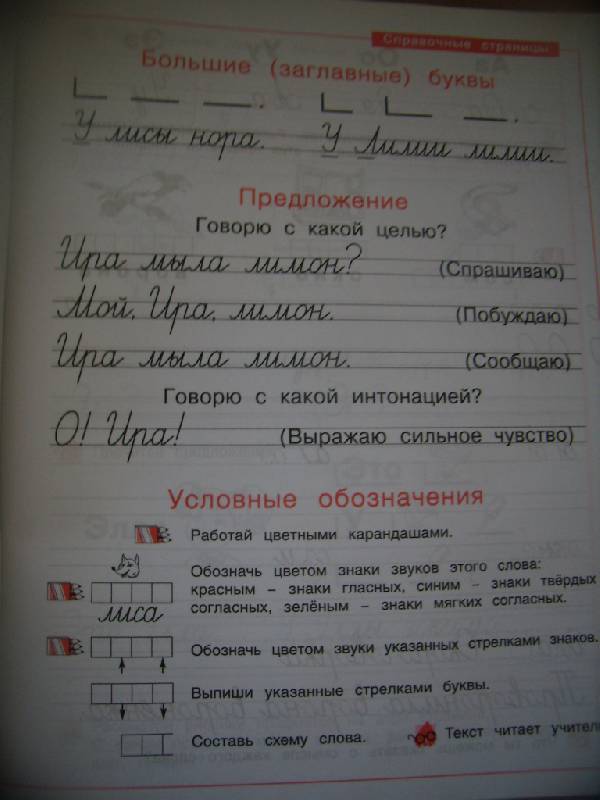 Справочные страницы
Большие (заглавные) буквы
У лисы нора. У Лилии лилии.
Предложение
Говорю с какой целью?
Ира мыла лимон? (Спрашиваю)
Мой, Ира, лимон. (Побуждаю)
Ира мыла лимон. (Сообщаю)
Говорю с какой интонацией?
О! Ира! (Выражаю сильное чувство)
Условные обозначения
Работай цветными карандашами.
Обозначь цветом знаки звуков этого слова:
красным – знаки гласных, синим – знаки твёрдых
согласных, зелёным – знаки мягких согласных.
лиса
Обозначь цветом звуки указанных стрелками знаков.
Выпиши указанные стрелками буквы.
Составь схему слова. Текст читает учитель